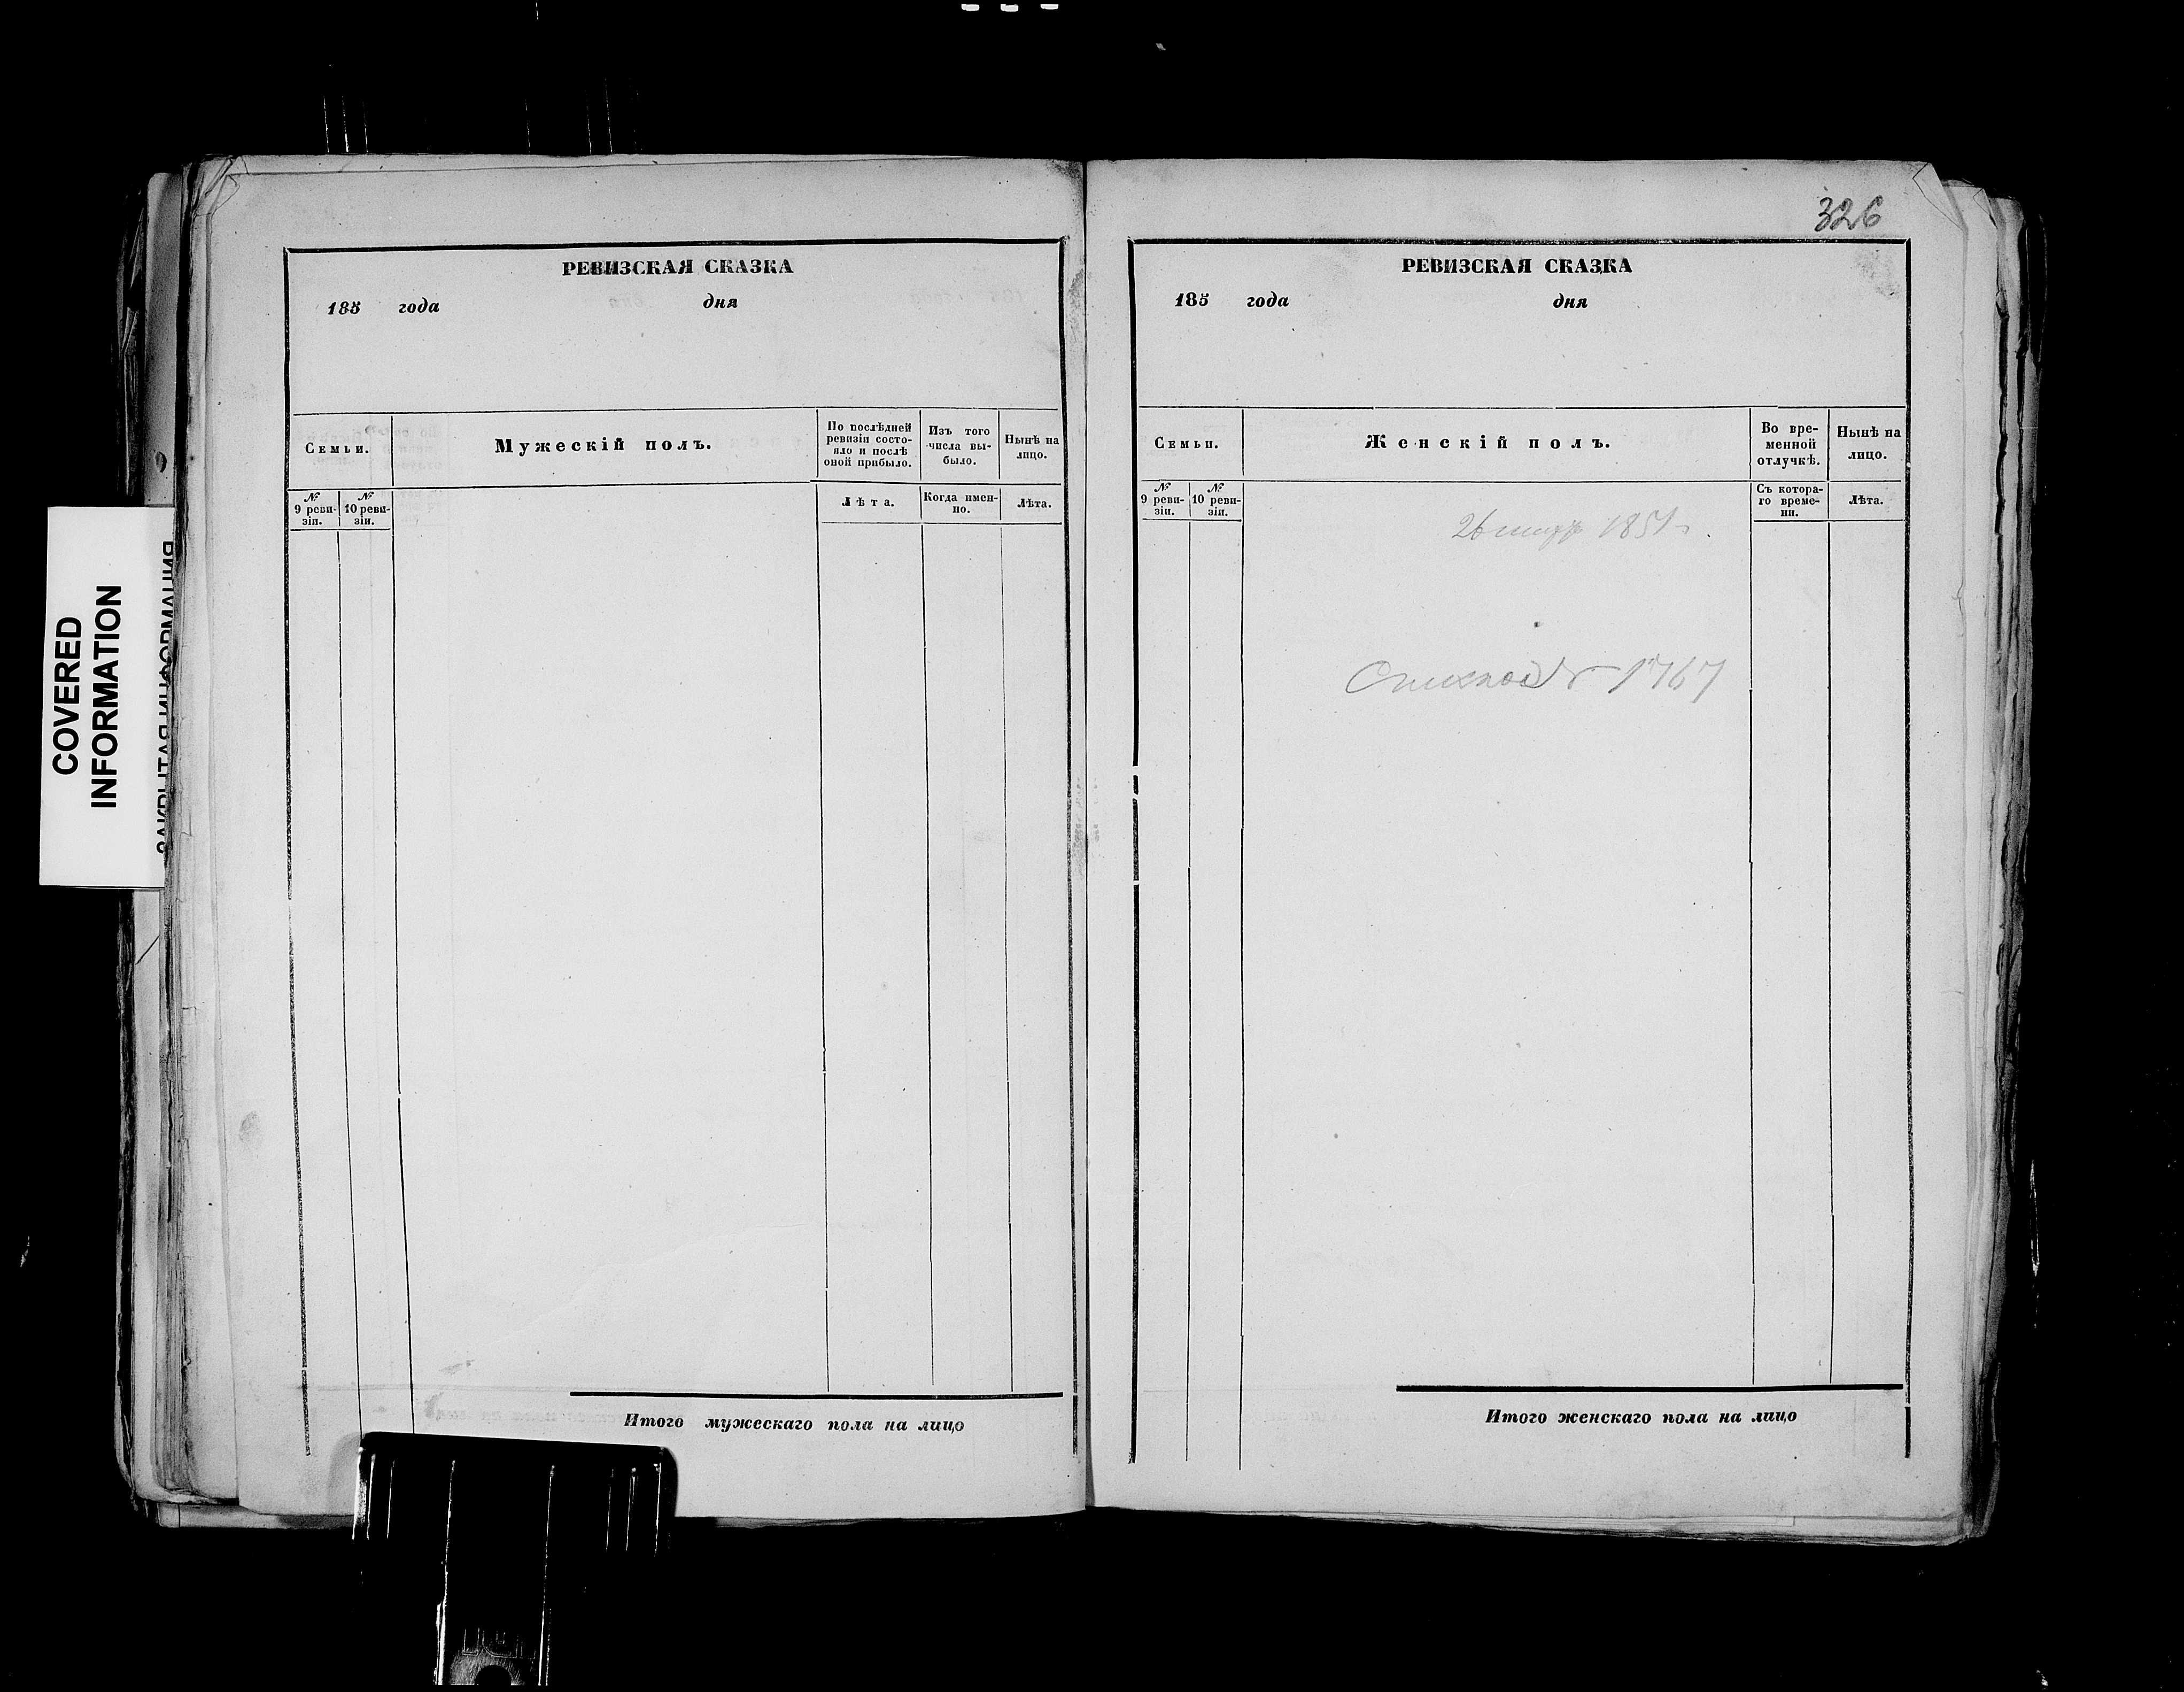 326
COVERED
INFORMATION
РЕВИЗСКАЯ СКАЗКА
185 года дня
Семьи.
Мужескій полъ.
По послѣдней
ревизіи состо-
яло и послѣ
оной прибыло.
Изъ того
числа вы-
было.
Нынѣ на
лицо.
№
9 реви-
зіи.
№
10 реви-
зіи.
Лѣта.
Когда имен-
но.
Лѣта.
Итого мужескаго пола на лицо
РЕВИЗСКАЯ СКАЗКА
185 года дня
Семьи.
Женскій полъ.
Во вре-
менной
отлучкѣ.
Нынѣ на
лицо.
№
9 реви-
зіи.
№
10 реви-
зіи.
Съ котора-
го време-
ни.
Лѣта.
26 185
1767
Итого женскаго пола на лицо